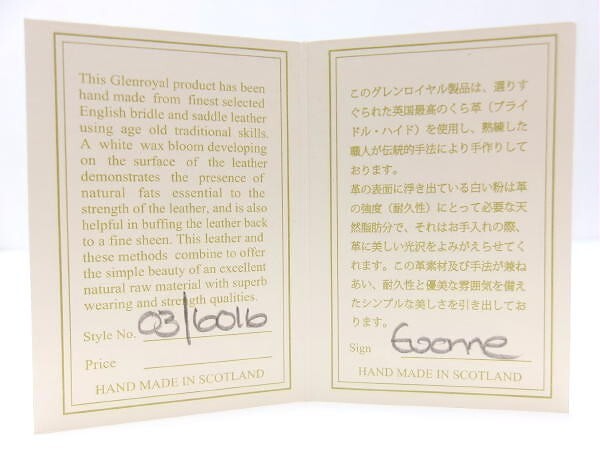 This Glenroyal product has been
hand made from finest selected
English bridle and saddle leather
using age old traditional skills.
A white wax bloom developing
on the surface of the leather
demonstrates the presence of
natural fats essential to the
strength of the leather, and is also
helpful in buffing the leather back
to a fine sheen. This leather and
these methods combine to offer
the simple beauty of an excellent
natural raw material with superb
wearing and strength qualities.
Style No. 03/6016
Price
HAND MADE IN SCOTLAND
このグレンロイヤル製品は、選りす
ぐられた英国最高のくら革（ブライ
ドル・ハイド）を使用し、熟練した
職人が伝統的手法により手作りして
おります。
革の表面に浮き出ている白い粉は革
の強度（耐久性）にとって必要な天
然脂肪分で、それはお手入れの際、
革に美しい光沢をよみがえらせてく
れます。この革素材及び手法が兼ね
あい、耐久性と優美な雰囲気を備え
たシンプルな美しさを引き出してお
ります。
Sign Evonne
HAND MADE IN SCOTLAND